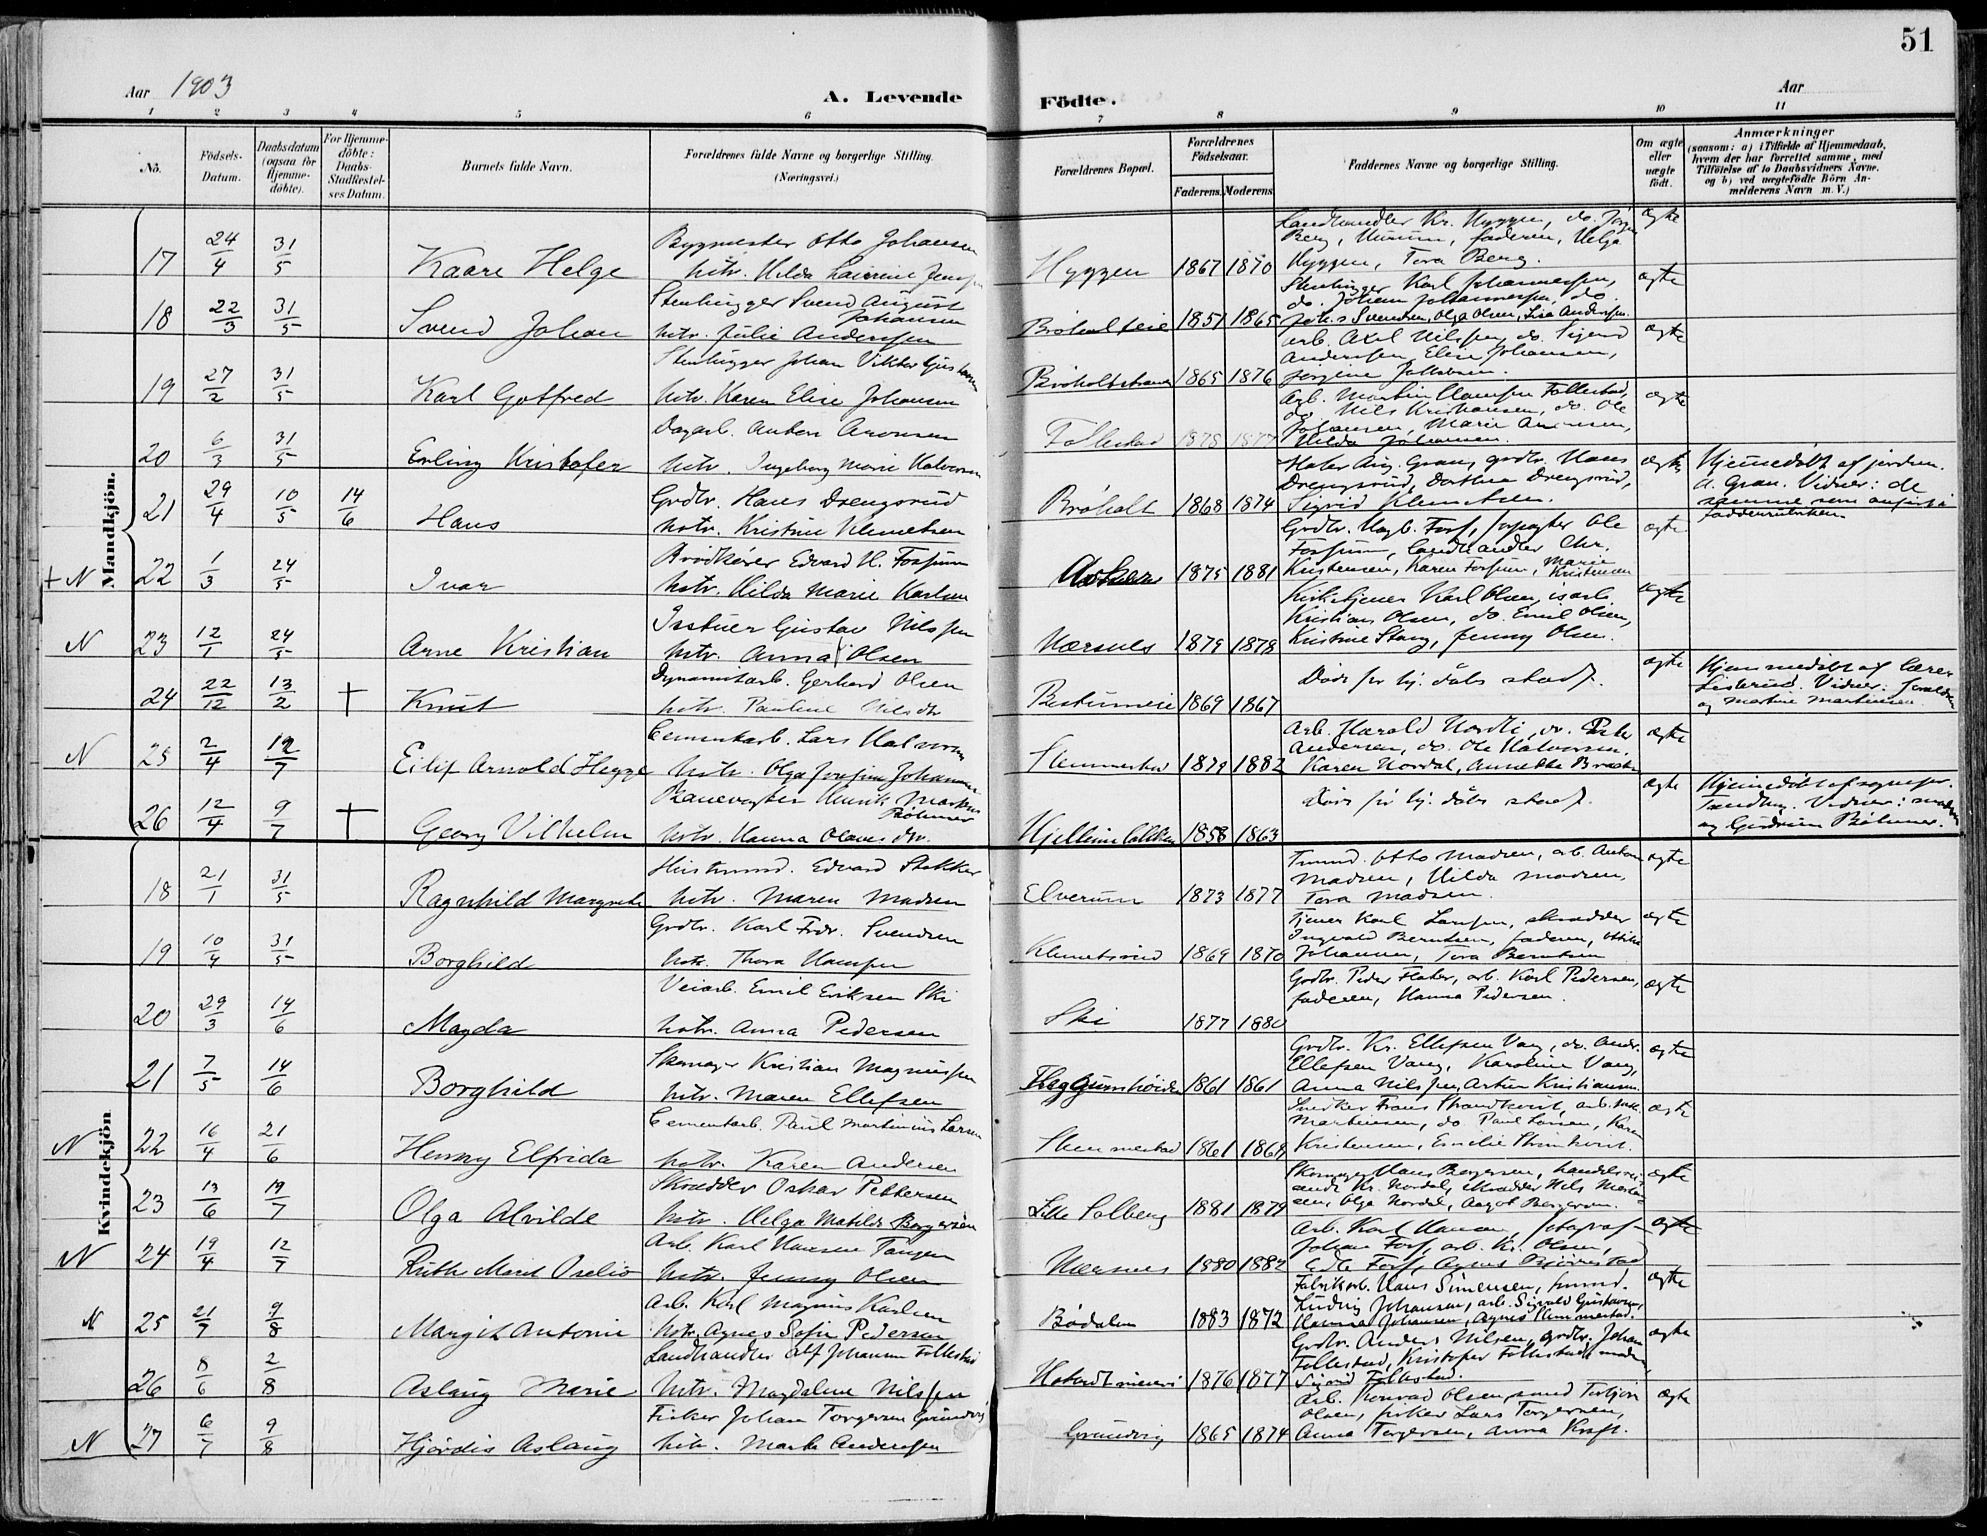 51
Aar 1903
A. Levende
Födte.
Aar
1 2 3 4 5 6 7 8 9 10 11
No.
Födsels-Datum.
Daabsdatum (ogsaa for Hjemme-döbte).
For Hjemme-döbte: Daabs-Stadfæstel-ses Datum.
Barnets fulde Navn.
Forældrenes fulde Navne og borgerlige Stilling. (Næringsvei.)
Forældrenes Bopæl.
Forældrenes Födselsaar.
Faderens. Moderens.
Faddernes Navne og borgerlige Stilling.
Om ægte eller uægte födt.
Anmærkninger
(saasom: a) i Tilfælde af Hjemmedaab, hvem der har forrettet samme, med Tilföielse af to Daabsvidners Navne, og b) ved uægtefödte Börn An-melderens Navn m. V.)
Mandkjön.
17 24/4 31/5 Kaare Helge Bygmester Otto Johansen
Hyggen 1867 1870 Landhandler Kr. Hyggen, do.
Berg, faderen, Helga
Hyggen, Tora Berg. ægte
18 22/3 31/5 Svend Johan Stenhugger Svend August Johansen
hstr. Julie Anderssen 1851 1865 Stenhugger Karl Johannessen,
do. Johan Johannessen, do.
Svendsen, Olga Olsen, Lisa Anderssen. ægte
19 27/2 31/5 Karl Gotfred Stenhugger Johan Viktor Gustavsen
hstr. Karen Elise Johansen 1865 1876 arb. Axel Nilssen, do. Sigurd
Anderssen, Elise Johansen,
Jörgine Jakobsen. ægte
20 6/3 31/5 Erling Kristofer Dagarb. Anton Aronsen
hstr. Ingeborg Marie Halvorsen Follestad 1878 1877 Arb. Martin Hanssen Follestad,
do. Nils Kristiansen, do. Ole
Johansen, Marie Aronsen,
Hilda Johansen. ægte
21 29/4 10/5 14/6 Hans Grdbr. Hans Drengsrud
hstr. Kristine Klemetsen Bröholt 1868 1874 grdbr. Hans
Drengsrud, Dorthea Drengsrud,
Sigrid Klemetsen. ægte Hjemmedöbt af jordm.
A. Gran. Vidner: de
samme som anfört i
fadderrubriken
+ N 22 1/3 24/5 Ivar Brödkjörer Edvard H. Fossum
hstr. Hilda Marie Karlsen Asker 1875 1881 Grdbr. Hagb. Foss, forpagter Ole
Fossum, landhandler Chr.
Kristensen, Karen Fossum, Marie Kristensen ægte
N 23 12/1 24/5 Arne Kristian Isstuer Gustav Nilssen
hstr. Anna Olsen Nærsnes 1879 1878 Kirketjener Karl Olsen, isarb.
Kristian Olsen, do. Emil Olsen,
Kristine Stang, Jenny Olsen. ægte
24 22/12 13/2 + Knut Dynamitarb. Gerhard Olsen
hstr. Pauline Nilsdtr. 1869 1867 Döde för hj. dåbs stadf. ægte Hjemmedöbt af lærer
Vidner: forældre
og Martine Martinsen
N 25 2/4 12/7 Eilif Arnold Hegge Cementarb. Lars Halvorsen
hstr. Olga Josefine Johansen Slemmestad 1879 1882 Arb. Harald Nordli, do. Peter
Andersen, do. Ole Halvorsen,
Karen Nordal, Annette ægte
26 12/4 9/7 + Georg Vilhelm Banevogter Henrik Markus Böhmer
hstr. Hanna Olavesdtr. 1858 1863 Döde för hj. dåbs stadf. ægte Hjemmedöbt af sognepr.
Vidner: moderen
og Gudrun Böhmer.
Kvindekjön
18 21/1 31/5 Ragnhild Margrethe Husmand. Edvard Stokker
hstr. Maren Madsen Elverum 1873 1877 Tömmd. Otto Madsen, arb. Anton
Madsen, Hilda Madsen,
Tora Madsen. ægte
19 10/4 31/5 Borghild Grdbr. Karl Fredr. Svendsen
hstr. Thora Hanssen Klemetsrud 1869 1870 Tjener Karl Larssen, skrædder
Ingvald Berntsen, faderen,
Johansen, Tora Berntsen ægte
20 29/3 14/6 Magda Veiarb. Emil Eriksen Ski
hstr. Anna Pedersen Ski 1877 1880 Grdbr. Peder Flater, arb. Karl Pedersen,
faderen, Hanna Pedersen. ægte
21 7/5 14/6 Borghild Skomager Kristian Magnussen
hstr. Maren Ellefsen 1861 1861 Grdbr. Kr. Ellefsen Vang, do. Andr.
Ellefsen Vang, Karoline Vang,
Anna Nilssen, Kristiansen. ægte
N 22 16/4 21/6 Henny Elfrida Cementarb. Paul Martinius Larsen
hstr. Karen Andersen Slemmestad 1861 1869 Snedker Frans Strandkvist, arb.
Martinsen, do Paul Larsen, Karen
Kristensen, Emilie ægte
23 13/6 19/7 Olga Alvilde Skrædder Oskar Pettersen
hstr. Helga Matilde Borgersen Lille Solberg 1881 1879 Skomager Hans Borgersen,
Kr. Nordal, skrædder Nils
Olga Nordal, Aagot Borgersen. ægte
N 24 19/4 12/7 Ruth Marit Arb. Karl Hansen Tangen
hstr. Jenny Olsen Nærsnes 1880 1882 Arb. Karl Hansen, fotograf
Johan Foss, arb. Kr. Olsen,
Foss, Agnes ægte
N 25 21/7 9/8 Margit Antonie Arb. Karl Magnus Karlsen
hstr. Agnes Sofie Pedersen Bödalen 1883 1872 Fabrikarb. Hans Simensen, tömmd.
Ludvig Johansen, arb. Sigvald Gustavsen,
Hanna Johansen, Agnes Slemmestad. ægte
26 8/6 2/8 Aslaug Marie Landhandler Alf Johansen Follestad
hstr. Magdalene Nilssen 1876 1877 Grdbr. Anders Nilsen, grdbr. Johan
Follestad, Kristofer Follestad,
Sigrid Follestad. ægte
N 27 6/7 9/8 Hjördis Aslaug Fisker Johan Torgersen Grundvig
hstr. Anderssen Grundvig 1865 1874 Arb. Konrad Olsen, Torbjörn
Olsen, fisker Lars Torgersen,
Anna Torgersen, Anna Kraft. ægte